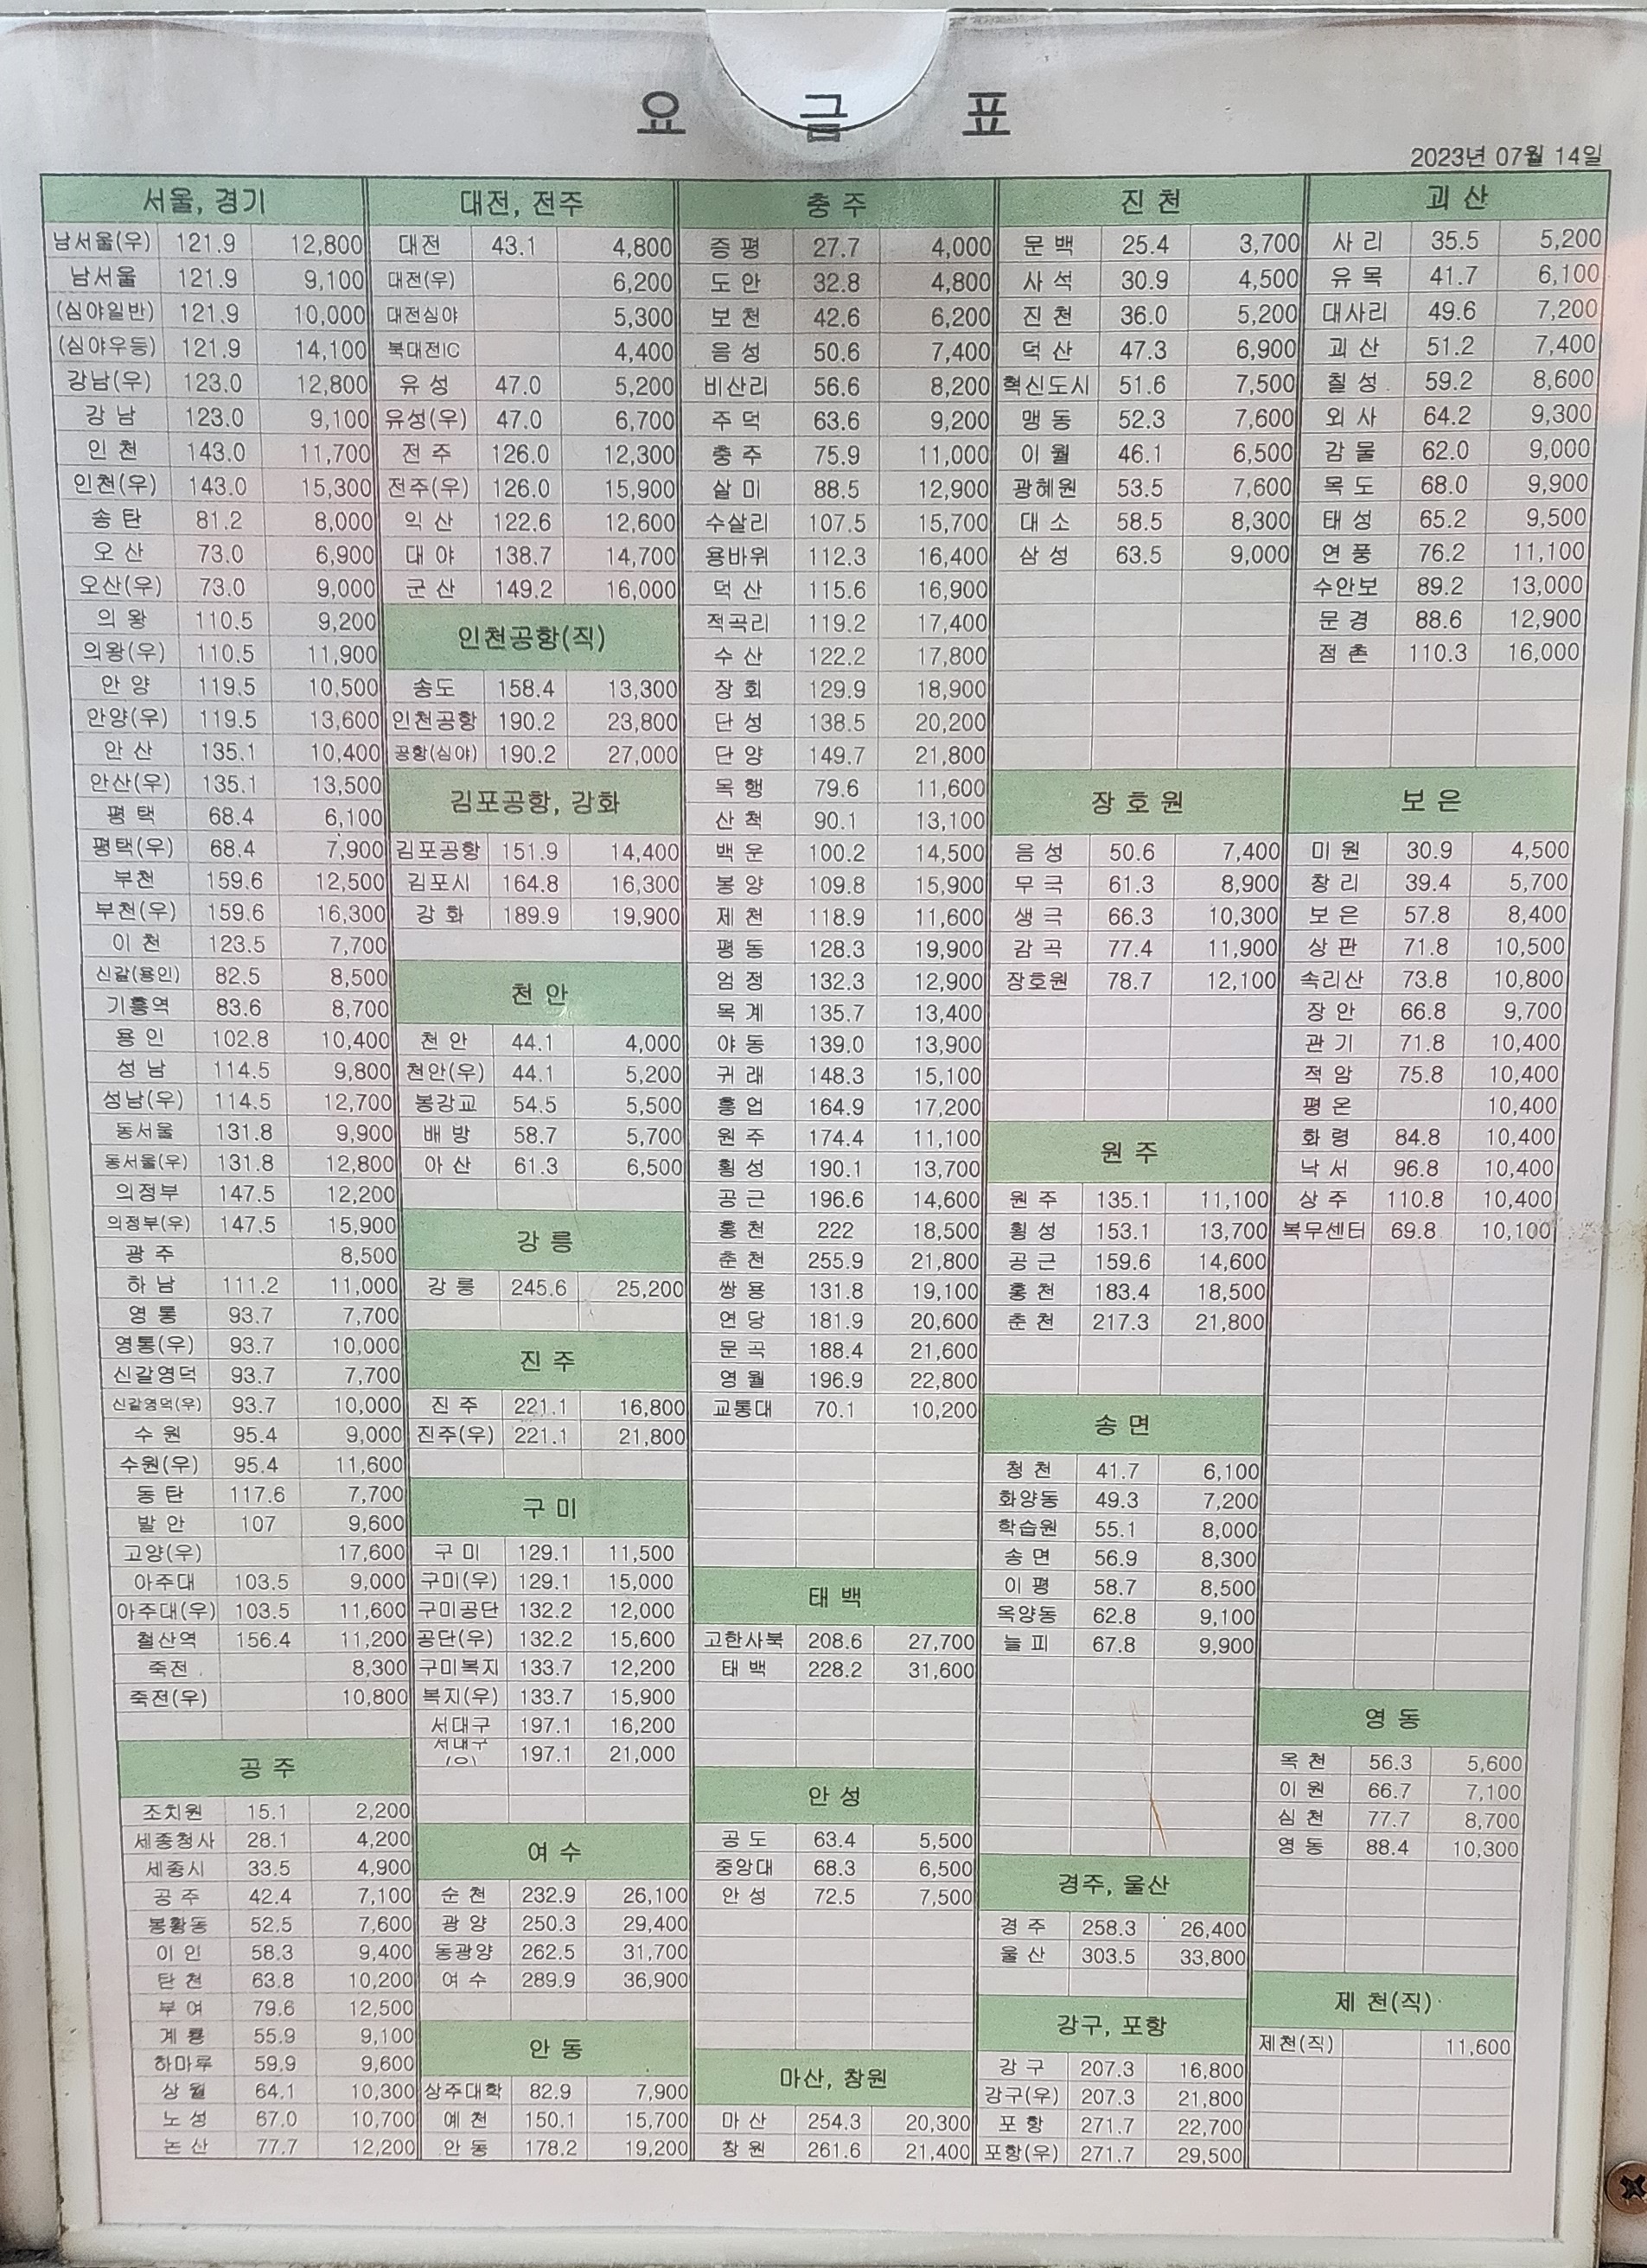 요 금 표
2023년 07월 14일
서울, 경기
남서울(우) 121.9 12,800
남서울 121.9 9,100
(심야일반) 121.9 10,000
(심야우등) 121.9 14,100
강남(우) 123.0 12,800
강 남 123.0 9,100
인 천 143.0 11,700
인천(우) 143.0 15,300
송 탄 81.2 8,000
오 산 73.0 6,900
오산(우) 73.0 9,000
의 왕 110.5 9,200
의왕(우) 110.5 11,900
안 양 119.5 10,500
안양(우) 119.5 13,600
안 산 135.1 10,400
안산(우) 135.1 13,500
평 택 68.4 6,100
평택(우) 68.4 7,900
부천 159.6 12,500
부천(우) 159.6 16,300
이 천 123.5 7,700
신갈(용인) 82.5 8,500
기흥역 83.6 8,700
용 인 102.8 10,400
성 남 114.5 9,800
성남(우) 114.5 12,700
동서울 131.8 9,900
동서울(우) 131.8 12,800
의정부 147.5 12,200
의정부(우) 147.5 15,900
광 주 8,500
하 남 111.2 11,000
영 통 93.7 7,700
영통(우) 93.7 10,000
신갈영덕 93.7 7,700
신갈영덕(우) 93.7 10,000
수 원 95.4 9,000
수원(우) 95.4 11,600
동 탄 117.6 7,700
발 안 107 9,600
고양(우) 17,600
아주대 103.5 9,000
아주대(우) 103.5 11,600
철산역 156.4 11,200
죽전 8,300
죽전(우) 10,800
공 주
조치원 15.1 2,200
세종청사 28.1 4,200
세종시 33.5 4,900
공 주 42.4 7,100
봉황동 52.5 7,600
이 인 58.3 9,400
탄 천 63.8 10,200
부 여 79.6 12,500
계 룡 55.9 9,100
하마루 59.9 9,600
상 월 64.1 10,300
노 성 67.0 10,700
논 산 77.7 12,200
대전, 전주
대전 43.1 4,800
대전(우) 6,200
대전심야 5,300
북대전IC 4,400
유 성 47.0 5,200
유성(우) 47.0 6,700
전 주 126.0 12,300
전주(우) 126.0 15,900
익 산 122.6 12,600
대 야 138.7 14,700
군 산 149.2 16,000
인천공항(직)
송도 158.4 13,300
인천공항 190.2 23,800
공항(심야) 190.2 27,000
김포공항, 강화
김포공항 151.9 14,400
김포시 164.8 16,300
강 화 189.9 19,900
천 안
천 안 44.1 4,000
천안(우) 44.1 5,200
봉강교 54.5 5,500
배 방 58.7 5,700
아 산 61.3 6,500
강 릉
강 릉 245.6 25,200
진 주
진 주 221.1 16,800
진주(우) 221.1 21,800
구 미
구 미 129.1 11,500
구미(우) 129.1 15,000
구미공단 132.2 12,000
공단(우) 132.2 15,600
구미복지 133.7 12,200
복지(우) 133.7 15,900
서대구 197.1 16,200
서대구(우) 197.1 21,000
여 수
순 천 232.9 26,100
광 양 250.3 29,400
동광양 262.5 31,700
여 수 289.9 36,900
안 동
상주대학 82.9 7,900
예 천 150.1 15,700
안 동 178.2 19,200
충 주
증 평 27.7 4,000
도 안 32.8 4,800
보 천 42.6 6,200
음 성 50.6 7,400
비산리 56.6 8,200
주 덕 63.6 9,200
충 주 75.9 11,000
살 미 88.5 12,900
수살리 107.5 15,700
용바위 112.3 16,400
덕 산 115.6 16,900
적곡리 119.2 17,400
수 산 122.2 17,800
장 회 129.9 18,900
단 성 138.5 20,200
단 양 149.7 21,800
목 행 79.6 11,600
산 척 90.1 13,100
백 운 100.2 14,500
봉 양 109.8 15,900
제 천 118.9 11,600
평 동 128.3 19,900
엄 정 132.3 12,900
목 계 135.7 13,400
야 동 139.0 13,900
귀 래 148.3 15,100
흥 업 164.9 17,200
원 주 174.4 11,100
횡 성 190.1 13,700
공 근 196.6 14,600
홍 천 222 18,500
춘 천 255.9 21,800
쌍 용 131.8 19,100
연 당 181.9 20,600
문 곡 188.4 21,600
영 월 196.9 22,800
교통대 70.1 10,200
태 백
고한사북 208.6 27,700
태 백 228.2 31,600
안 성
공 도 63.4 5,500
중앙대 68.3 6,500
안 성 72.5 7,500
마산, 창원
마 산 254.3 20,300
창 원 261.6 21,400
진 천
문 백 25.4 3,700
사 석 30.9 4,500
진 천 36.0 5,200
덕 산 47.3 6,900
혁신도시 51.6 7,500
맹 동 52.3 7,600
이 월 46.1 6,500
광혜원 53.5 7,600
대 소 58.5 8,300
삼 성 63.5 9,000
장 호 원
음 성 50.6 7,400
무 극 61.3 8,900
생 극 66.3 10,300
감 곡 77.4 11,900
장호원 78.7 12,100
원 주
원 주 135.1 11,100
횡 성 153.1 13,700
공 근 159.6 14,600
홍 천 183.4 18,500
춘 천 217.3 21,800
송 면
청 천 41.7 6,100
화양동 49.3 7,200
학습원 55.1 8,000
송 면 56.9 8,300
이 평 58.7 8,500
옥양동 62.8 9,100
늘 피 67.8 9,900
경주, 울산
경 주 258.3 26,400
울 산 303.5 33,800
강구, 포항
강 구 207.3 16,800
강구(우) 207.3 21,800
포 항 271.7 22,700
포항(우) 271.7 29,500
괴 산
사 리 35.5 5,200
유 목 41.7 6,100
대사리 49.6 7,200
괴 산 51.2 7,400
칠 성 59.2 8,600
외 사 64.2 9,300
감 물 62.0 9,000
목 도 68.0 9,900
태 성 65.2 9,500
연 풍 76.2 11,100
수안보 89.2 13,000
문 경 88.6 12,900
점 촌 110.3 16,000
보 은
미 원 30.9 4,500
창 리 39.4 5,700
보 은 57.8 8,400
상 판 71.8 10,500
속리산 73.8 10,800
장 안 66.8 9,700
관 기 71.8 10,400
적 암 75.8 10,400
평 온 10,400
화 령 84.8 10,400
낙 서 96.8 10,400
상 주 110.8 10,400
복무센터 69.8 10,100
영 동
옥 천 56.3 5,600
이 원 66.7 7,100
심 천 77.7 8,700
영 동 88.4 10,300
제 천(직)
제천(직) 11,600